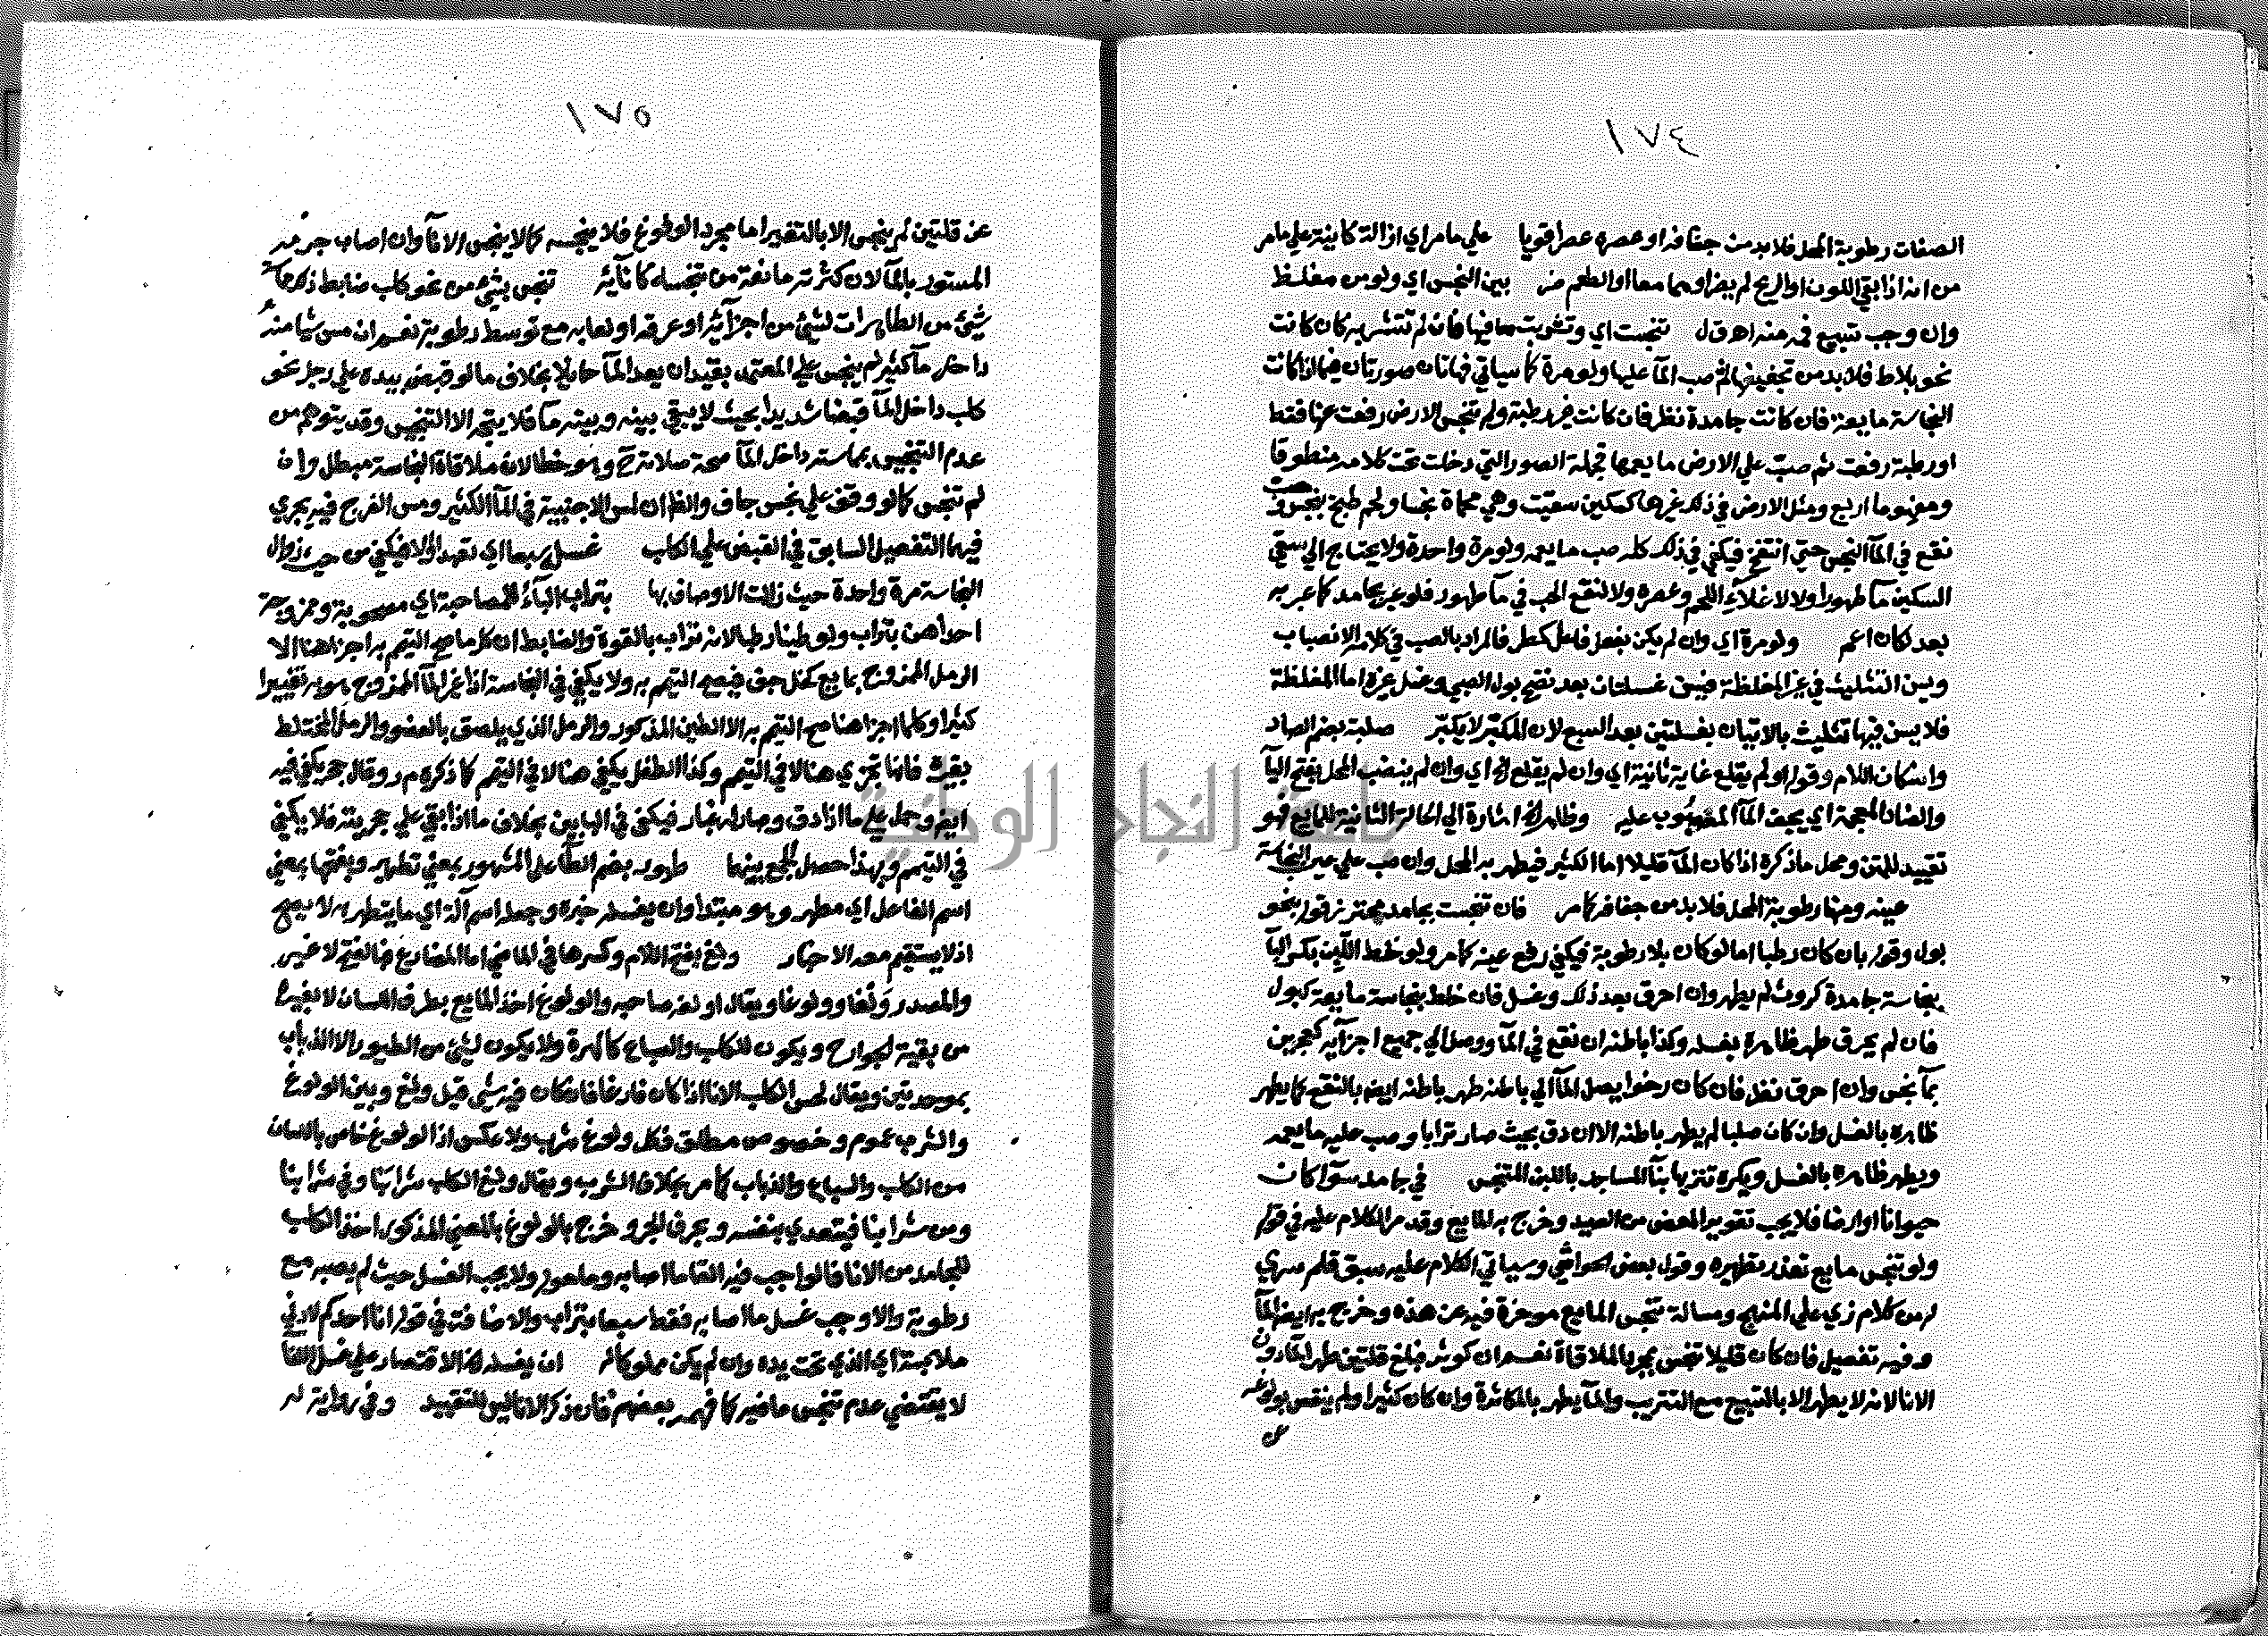 ١٧٤
الصفات رطوبة المحل فلابد من جفافه او عصره عصرا قويا علي مامر اي ازالة كاينة علي مامر
من انه اذا بقي اللون او الريح لم يضر او هما معا او الطعم ضر بين النجس اي ولو من مغلظ
وان وجب تسبيع فمه منه اه ق ل تنجست اي وتشربت مافيها فان لم تتشربه كان كانت
نحو بلاط فلابد من تجفيفها ثم صب المآ عليها ولو مرة كما سياتي فهاتان صورتان فيما اذا كانت
النجاسة مايعة فان كانت جامدة نظر فان كانت غير رطبة ولم تنجس الارض رفعت عنها فقط
او رطبة رفعت ثم صب علي الارض ما يعمها فجملة الصور التي دخلت تحت كلامه منطوقا
ومفهوما اربع ومثل الارض في ذلك غيرها كسكين سقيت وهي محماة نجسا ولحم طبخ بنجس وحب
نقع في المآ النجس حتي انتفخ فيكفي في ذلك كله صب ما يعمه ولو مرة واحدة ولا يحتاج الي سقي
السكين مآ طهورا ولا لاغلآء اللحم وعصره ولا لنقع الحب في مآ طهور فلو عبر بجامد كما عبر به
بعد لكان اعم ولو مرة اي وان لم يكن بفعل فاعل كمطر فالمراد بالصب في كلامه الانصباب
ويسن التثليث في غير المغلظة فيسن غسلتان بعد نضح بول الصبي وغسل غيره اما المغلظة
فلا يسن فيها تثليث بالاتيان بغسلتين بعد السبع لان المكبر لا يكبر صلبة بضم الصاد
واسكان اللام وقوله او لم يقلع غاية ثانية اي وان لم يقلع الخ اي وان لم ينضب المحل بفتح اليآ
والضاد المعجمة اي يجف المآ المصبوب عليه وظاهره اشارة الي الحالة الثانية للمايع فهو
تقييد للمتن ومحل ماذكره اذا كان المآ قليلا اما الكثير فيطهر به المحل وان صب علي عين النجاسة
عينه ومنها رطوبة المحل فلابد من جفافه كما مر فان تنجست بجامد محترز قوله بنحو
بول وقوله بان كان رطبا اما لو كان بلا رطوبة فيكفي رفع عينه كما مر ولو خلط اللبن بكسر البآ
بنجاسة جامدة كروث لم يطهر وان احرق بعد ذلك وغسل فان خلط بنجاسة مايعة كبول
فان لم يحرق طهر ظاهره بغسله وكذا باطنه ان نقع في المآ ووصل الي جميع اجزآيه كعجين
بمآ نجس وان احرق نظر فان كان رخوا يصل المآ الي باطنه طهر باطنه ايضا بالنقع كما يطهر
ظاهره بالغسل وان كان صلبا لم يطهر باطنه الا ان دق بحيث صار ترابا وصب عليه ما يعمه
ويطهر ظاهره بالغسل ويكره تنزيها بنآ المساجد باللبن المتنجس في جامد سوآ كان
حيوانا او ارضا فلا يجب تقوير العض من الصيد وخرج به المايع وقد مر الكلام عليه في قوله
ولو تنجس مايع تعذر تطهيره وقول بعض الحواشي وسياتي الكلام عليه سبق قلم سري
له من كلام زي علي المنهج ومسالة تنجس المايع موخرة فيه عن هذه وخرج به ايضا المآ
وفيه تفصيل فان كان قليلا تنجس بمجرد الملاقاة نعم ان كوثر فبلغ قلتين طهر المآ دون
الانا لانه لا يطهر الا بالتسبيع مع التتريب والمآ يطهر بالمكاثرة وان كان كثيرا ولم ينقص بولوغه
عن
١٧٥
عن قلتين لم ينجس الا بالتغير اما مجرد الولوغ فلا ينجسه كما لا ينجس الانآ وان اصاب جرمه
المستور بالمآ لان كثرته مانعة من تنجسه كانآئه تنجس بشيء من نحو كلب ضابط ذلك
شيئ من الطاهرات لشيئ من اجزآئه او عرقه او لعابه مع توسط رطوبة نعم ان مس شيا منه
داخل مآ كثير لم ينجس علي المعتمد بقيد ان يعد المآ حايلا بخلاف ما لو قبض بيده علي رجل نحو
كلب داخل المآ قبضا شديدا بحيث لا يبقي بينه وبينه مآ فلا يتجه الا التنجيس وقد يتوهم من
عدم التنجيس بمماسته داخل المآ صحة صلاته ح وهو خطا لان ملاقاة النجاسة مبطل وان
لم تنجس كما لو وقف علي نجس جاف والظ ان لمس الاجنبية في المآ الكثير ومس الفرج فيه يجري
فيهما التفصيل السابق في القبض علي الكلب غسل سبعا اي تعبدا والا فيكفي من حيث زوال
النجاسة مرة واحدة حيث زالت الاوصاف بها بتراب البآء للمصاحبة اي مصحوبة وممزوجة
احداهن بتراب ولو طينا رطبا لانه تراب بالقوة والضابط ان كل ما صح التيمم به اجزا هنا الا
الرمل الممزوج بمايع كخل جف فيصح التيمم به ولا يكفي في النجاسة اذا غير المآ الممزوج هو به تغييرا
كثيرا وكلما اجزا هنا صح التيمم به الا الطين المذكور والرمل الذي يلصق بالعضو والرمل المختلط
فانها تجزي هنا لا في التيمم وكذا الطفل يكفي هنا لا في التيمم كما ذكره م ر وقال حج يكفي فيه
ايضا وحمل علي ما اذا دق وصار له غبار فيكفي في البابين بخلاف ما اذا بقي علي حجريته فلا يكفي
في التيمم وبهذا حصل الجمع بينهما طهور بضم الطآ علي المشهور بمعني تطهير وبفتحها بمعني
اسم الفاعل اي مطهر وهو مبتدا وان يغسله خبره وجعله اسم آلة اي ما يتطهر به لا يصح
اذ لا يستقيم معه الاخبار ولغ بفتح اللام وكسرها في الماضي اما المضارع فبالفتح لا غير
والمصدر وَلْغا وولوغا ويقال اولغه صاحبه والولوغ اخذ المايع بطرف اللسان لا بغيره
من بقية الجوارح ويكون للكلب والسباع كالهرة ولا يكون لشيئ من الطيور الا الذباب
بموحدتين ويقال لحس الكلب الانا اذا كان فارغا فان كان فيه شيئ قيل ولغ وبين الولوغ
والشرب عموم وخصوص مطلق فكل ولوغ شرب ولا عكس اذ الولوغ خاص باللسان
من الكلب والسباع والذباب كما مر بخلاف الشرب ويقال ولغ الكلب شرابَنا وفي شرابنا
ومن شرابنا فيتعدي بنفسه وبحرف الجر وخرج بالولوغ بالمعني المذكور اخذ الكلب
للجامد من الانا فالواجب فيه القا ما اصابه وما حوله ولا يجب الغسل حيث لم يصبه مع
رطوبة والا وجب غسل ما اصابه فقط سبعا بتراب والاضافة في قوله انا احدكم لادني
ملابسة اي الذي تحت يده وان لم يكن مملوكا له ان يغسله الخ الاقتصار علي غسل الانا
لا يقتضي عدم تنجس ما فيه كما فهمه بعضهم فان ذكر الانا ليس للتقييد وفي رواية له